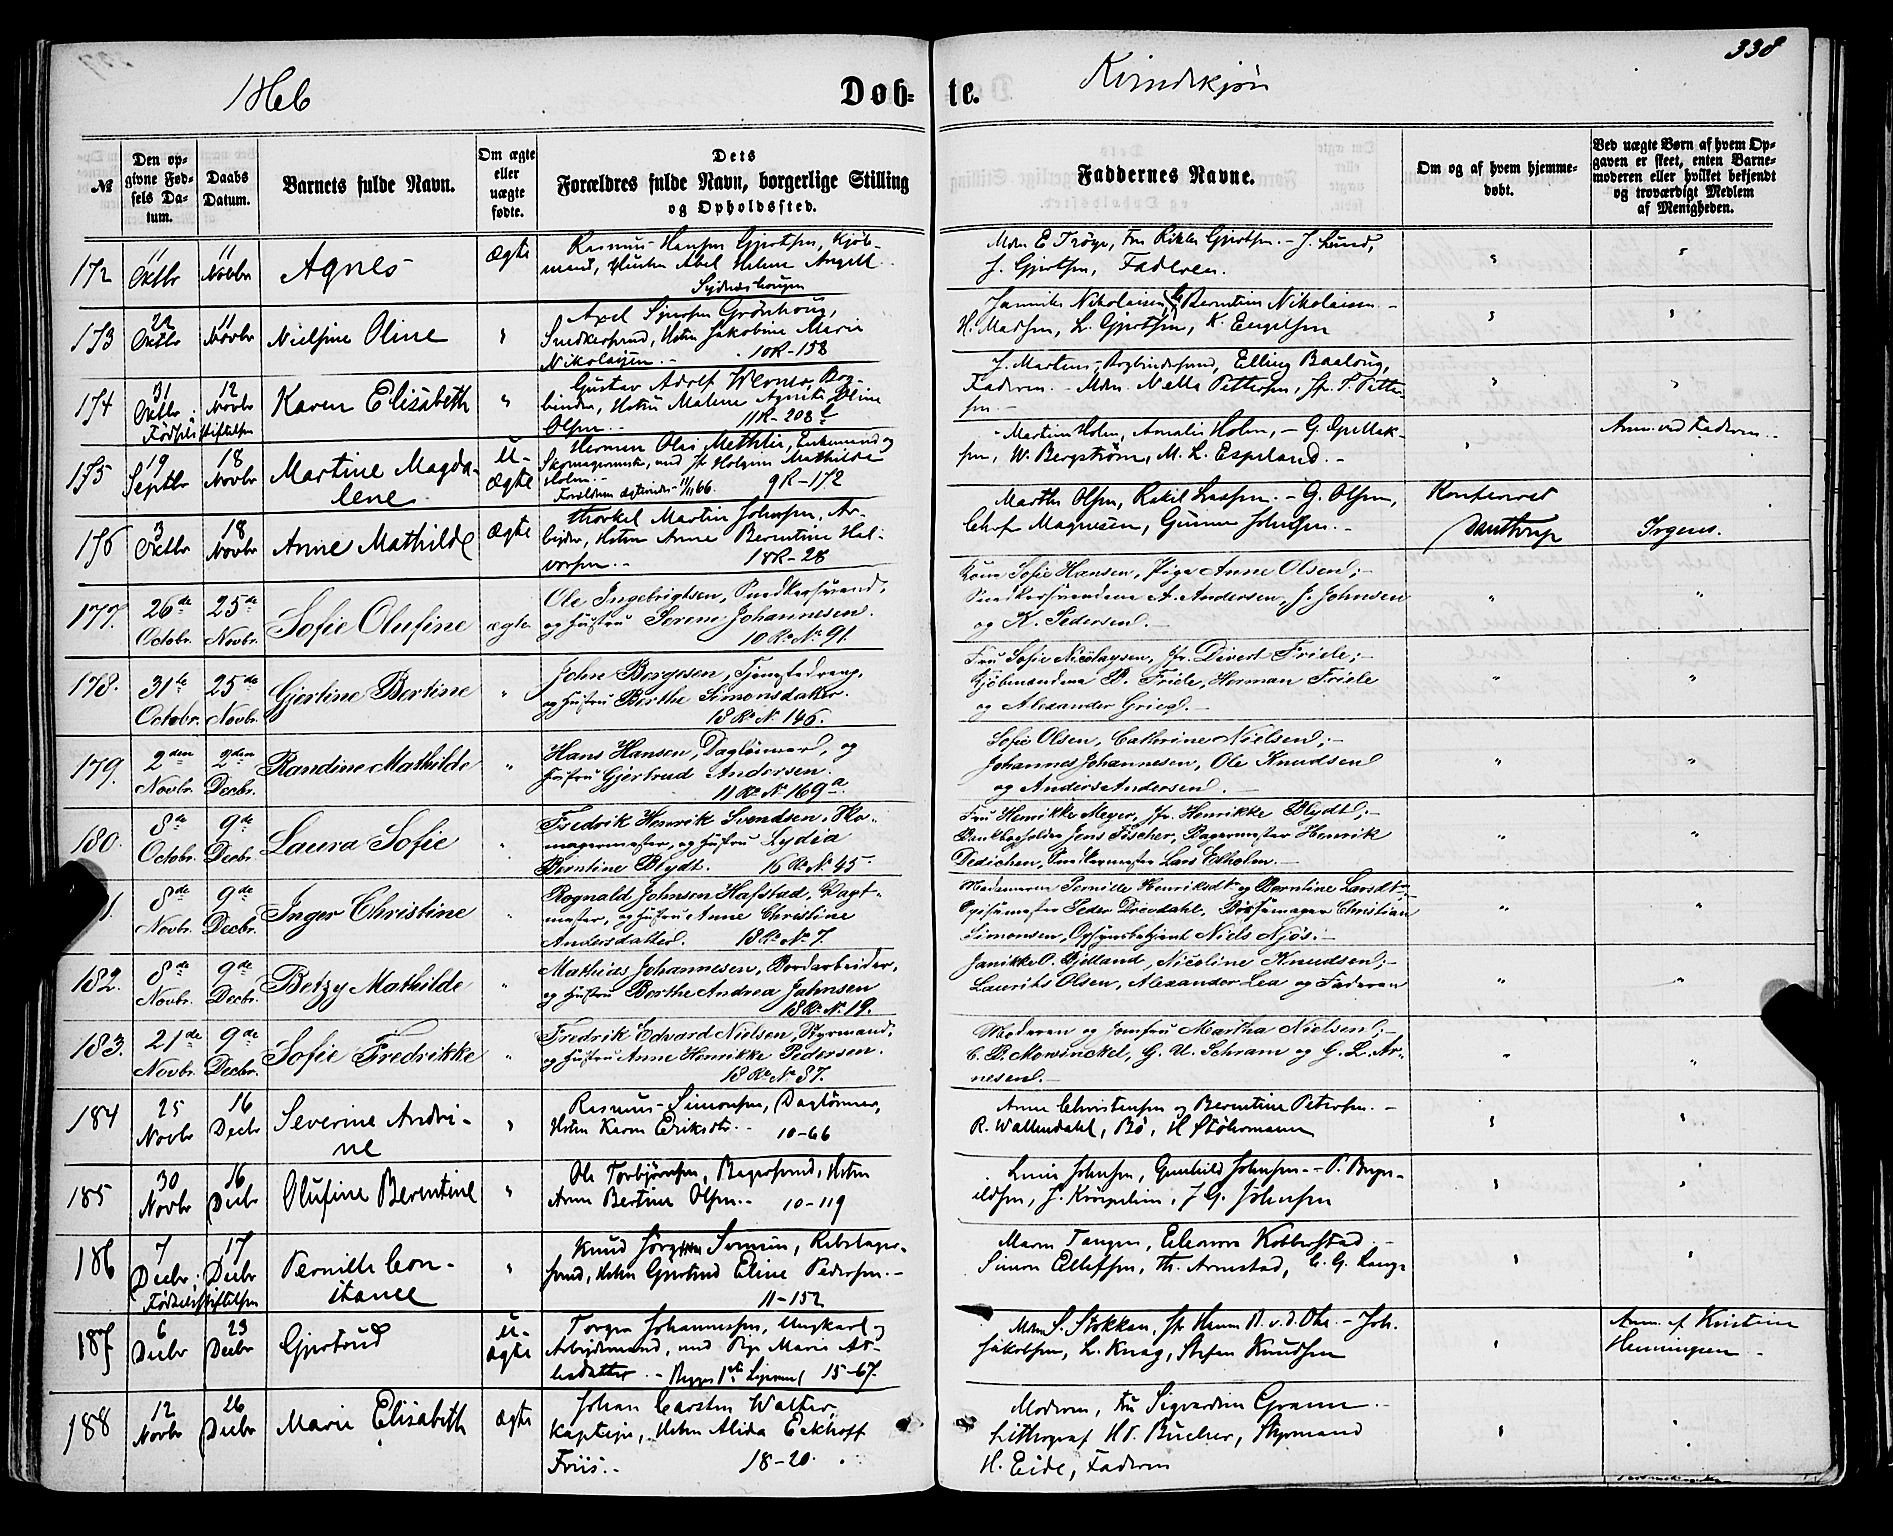 338
1866 Døb- te. Kvindekjøn
№
Den op-
givne Fød-
sels Da-
tum.
Daabs
Datum.
Barnets fulde Navn.
Om ægte
eller
uægte
fødte.
Dets
Forældres fulde Navn, borgerlige Stilling
og Opholdssted.
Faddernes Navne.
Om og af hvem hjemme-
døbt.
Ved uægte Børn af hvem Op-
gaven er skeet, enten Barne-
moderen eller hvilket bekjendt
og troværdigt Medlem
af Menigheden.
172
11 Octbr
11 Novbr
Agnes
ægte
Rasmus Hansen Gjertsen, Kjøb-
mand, Hustru Abel Helene Angell
Sydnæshougen
J. Gjertsen, Faderen.
173
22 Octbr
11 Novbr
Nielsine Oline
"
Axel Sjursen Grønhoug,
Snedkersvend, Hstru Jakobine Marie
Nikolaisen.- 10R-158
Jannike Nikolaisen, Berntine Nikolaisen -
H. Madsen, L. Gjertsen, K. Engelsen
174
31 Octbr
12 Novbr
Karen Elisabeth
"
Gustav Adolf Werner, Bog-
binder, Hstru Malene Agnete Oline
Olsen.- 11R-208
J. Martens, Bogbindersvend, Elling
Faderen. - Mdm Nella Pettersen, Jfr.
Fødselsstiftelsen
175
19 Septbr
18 Novbr
Martine Magda-
lene
u-
ægte
Herman Olai Enkemand og
med Jfr Mathilde
Holm.-
11/11 66. 9R-172
Martin Holm, Amalie Holm, - G.
W. Bergstrøm, M. L. Espeland.-
Anm. ved Faderen.
176
3 Octbr
18 Novbr
Anne Mathilde
ægte
Thorkel Martin Johnsen, Ar-
beider, Hstru Anne Berentine Hal-
vorsen.- 18R-28
Marthe Olsen, Rakel Larsen.- G. Olsen,
Magnesen, Gunnar Johnsen.-
Konfereret
Irgens.
177.
26de Octobr.
25de Novbr.
Sofie Olufine
ægte
Ole Ingebrigtsen, Snedkersvend,
og Hustru Serene Johannesen.
10 Rde No 91.
Kone Sofie Hansen, Pige Anne Olsen;-
Snedkersvendene A. Andersen, J. Johnsen
og K. Pedersen.-
178.
31te Octobr.
25de Novbr.
Gjertine Bertine
"
John Borgesen, Tjenestedreng,
og Hustru Berthe Simonsdatter.
18 Rde N. 146.
Fru Sofie Nicolaysen, Jfr. Divert Friele;-
Kjøbmændene D. Friele, Herman Friele
og Alexander Grieg.-
179.
2den Novbr.
2den Decbr.
Randine Mathilde
"
Hans Hansen, Dagløner, og
Hustru Gjertrud Andersen.
11 Rde N. 169a.
Sofie Olsen, Cathrine Nielsen;-
Johannes Johannesen, Ole Knudsen
og Anders Andersen.-
180.
8de Octobr.
9de Decbr.
Laura Sofie
"
Fredrik Henrik Svendsen, Sko-
magermester, og Hustru Lydia
Berntine Blydt. 16 Rde N. 45.
Fru Henrikke Meyer, Jfr. Henrikke Blydt;-
Bankbogholder Jens Fischer, Bagermester Henrik
Dedichen, Snedkermester Lars Ekholm.-
1.
8de Novbr.
9de Decbr.
Inger Christine
"
Rognald Johnsen Hafstad, Vagt-
mester, og Hustru Anne Christine
Andersdatter. 18 Rde No 7.
Madamerne Pernille Henriksdtr og Berntine Larsdtr
Spisemester Peder Drevdahl, Bøssemager Christian
Simonsen, Opsynsbetjent Niels Njøs.-
182.
8de Novbr.
9de Decbr.
Betzy Mathilde
"
Mathias Johannesen, Bordarbeider,
og Hustru Berthe Andrea Jahnsen
18 Rde N. 19.
Janikke O. Bjelland, Nicoline Knudsen;-
Laurits Olsen, Alexander Lea og Faderen
183.
21de Novbr.
9de Decbr.
Sofie Fredrikke
"
Fredrik Edvard Nielsen, Styrmand,
og Hustru Anne Henrikke Pedersen.
18 Rde No 87.
Moderen og Jomfru Martha Nielsen;-
C. D. Mowinckel, G. U. Schram og G. L. Ar-
nesen.-
184
25 Novbr
16 Decbr
Severine Andri-
ne
"
Rasmus Simonsen, Dagløner,
Hstru Karen Eriksdtr.- 10-66
Anne Christensen og Berentine Petersen.-
R. Wallendahl, Bø, H Støhrmann
185
30 Novbr
16 Decbr
Olufine Berentine
"
Ole Torbjørnsen, Bagersvend, Hstru
Anne Bertine Olsen.- 10-119
Johnsen, Gunhild Johnsen.-
J. G. Johnsen
186
7 Decbr
17 Decbr
Pernille Con-
stance
"
Knud Svensen, Rebslager-
svend, Hstru Gjertrud Eline Pedersen.-
11-152
Maren Tangen, Eleonora Kobberstad.-
Simon Ellefsen, Th. Arnestad, C. G. Lange
Fødselsstiftelsen
187
6 Decbr
23 Decbr
Gjertrud
u-
ægte
Torger Johannessen, Ungkarl og
Arbeidsmand, med Pige Marie As-
lesdatter.- Begges 1ste Leiermaal 15-67.
Mdm S. Stokken, Jfr - Joh.
Jakobsen, L. Krag, Stefen Knudsen
Anm. af Kristine
Henningsen -
188
12 Novbr
26 Decbr
Marie Elisabeth
ægte
Johan Carsten Walter,
Kaptejn, Hstru Alida Eckhoff
Friis.- 18-20.
Moderen, Fru Sigvardine Gram.-
Lithograf H. Bucher, Styrmand
H. Eide, Faderen